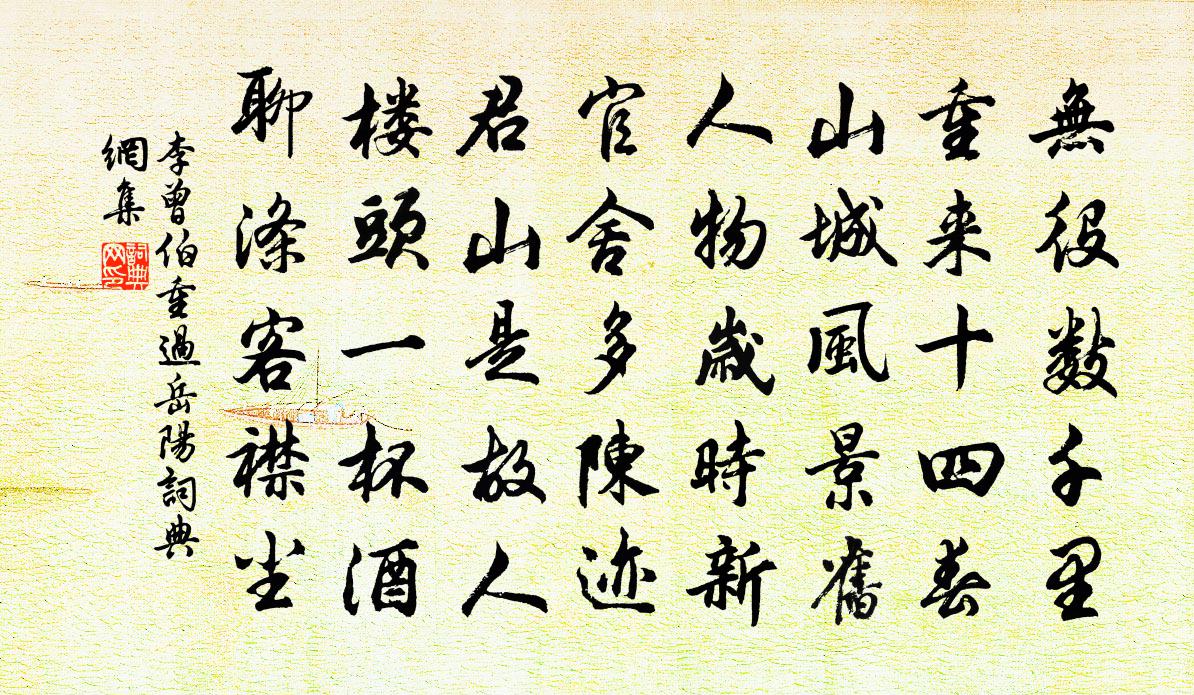 無役数千里
重来十四春
山城風景舊
人物歲時新
官舍多陳迹
君山是故人
楼頭一杯酒
聊滌客襟尘
李曾伯重過岳陽詞典
網集
詞典
网印